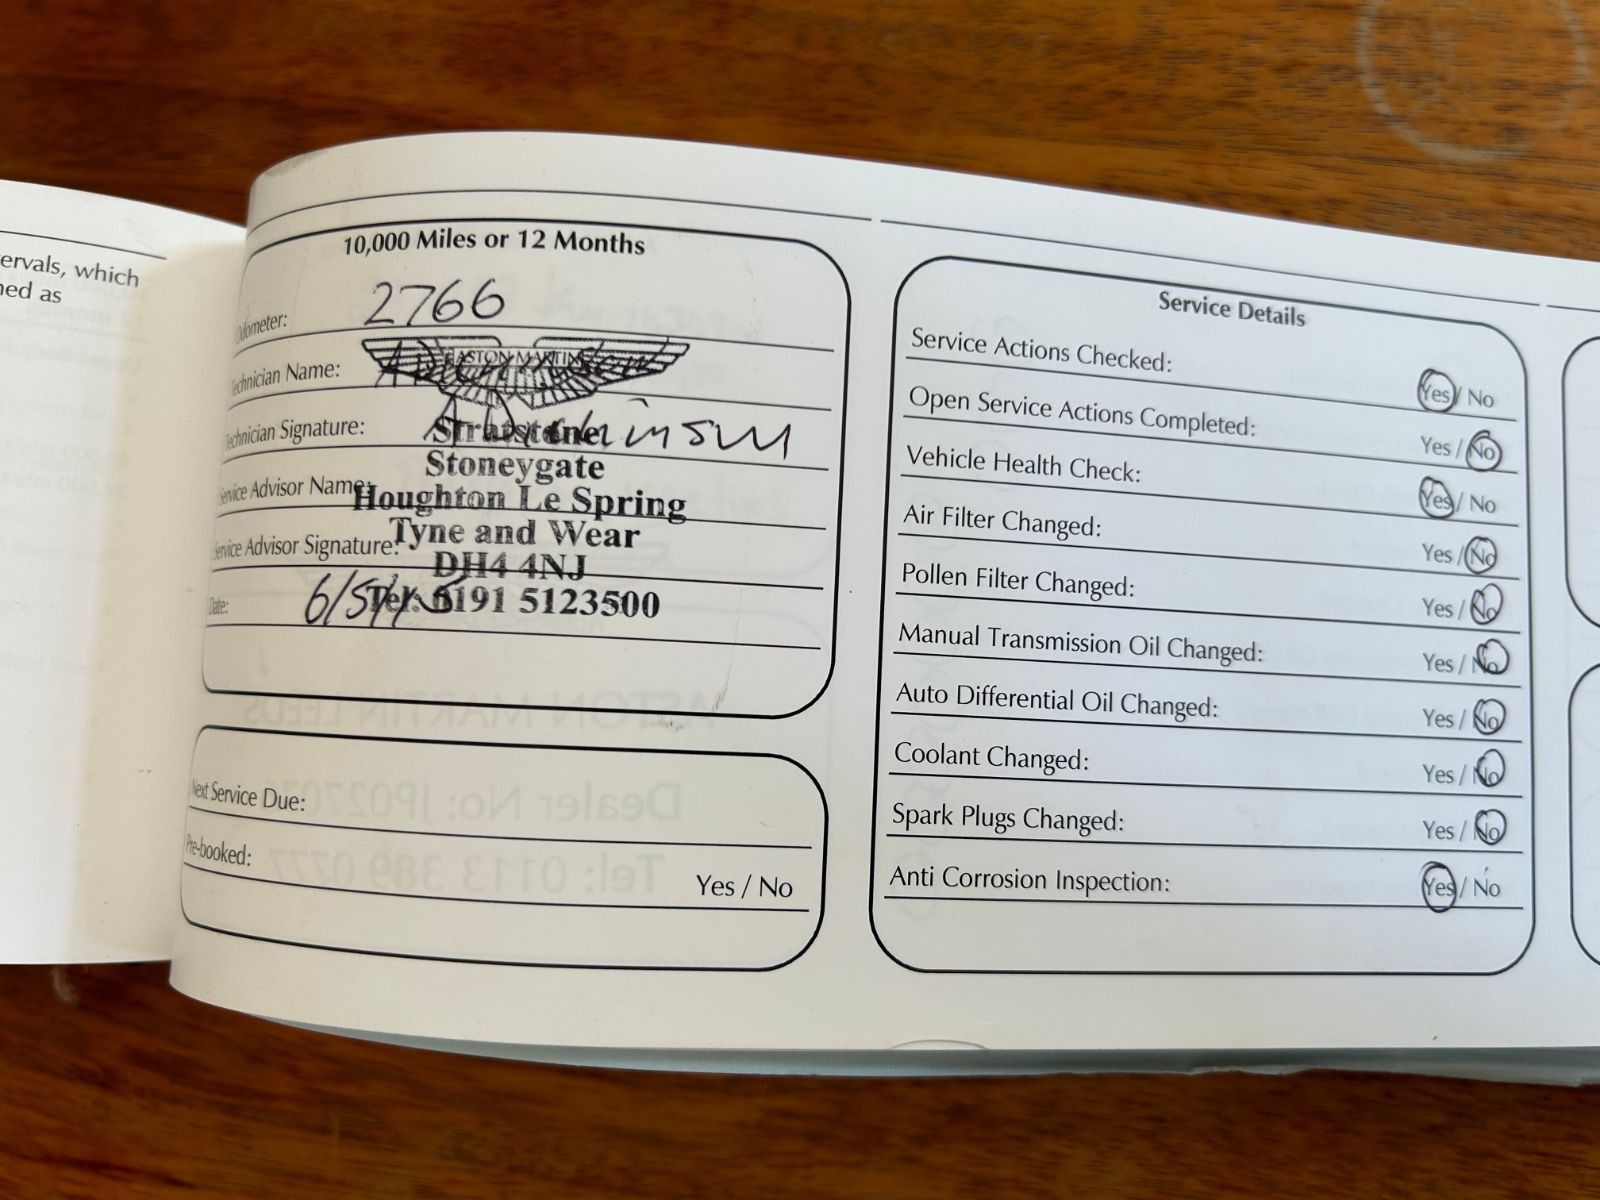 ervals, which
ned as
10,000 Miles or 12 Months
Odometer: 2766
ASTON MARTIN
Technician Name:
Technician Signature:
Stratstone
Stoneygate
Service Advisor Name:
Houghton Le Spring
Tyne and Wear
Service Advisor Signature:
DH4 4NJ
Date: 6/5/
Tel: 0191 5123500
Next Service Due:
Pre-booked:
Yes / No
Service Details
Service Actions Checked: Yes / No
Open Service Actions Completed: Yes / No
Vehicle Health Check: Yes / No
Air Filter Changed: Yes / No
Pollen Filter Changed: Yes / No
Manual Transmission Oil Changed: Yes / No
Auto Differential Oil Changed: Yes / No
Coolant Changed: Yes / No
Spark Plugs Changed: Yes / No
Anti Corrosion Inspection: Yes / No
ASTON MARTIN LEEDS
Tel: 0113 389 0777